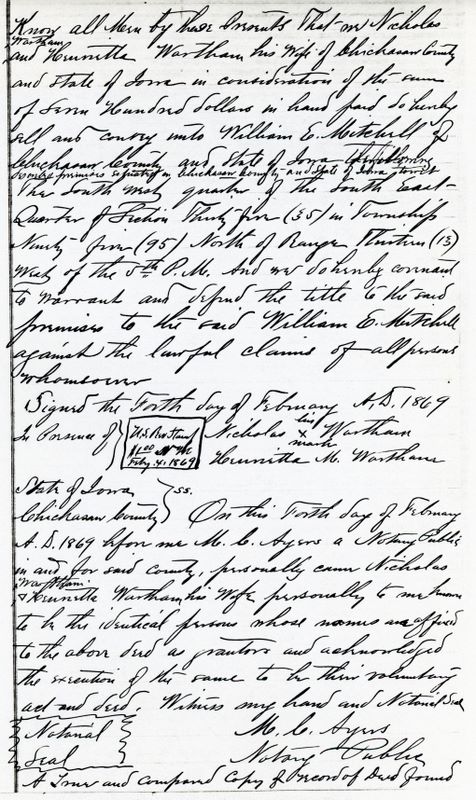 Know all Men by these Presents That we Nicholas
Wartham
and Henrietta Wartham his Wife of Chickasaw County
and State of Iowa in consideration of the sum
of Seven Hundred dollars in hand paid do hereby
sell and convey unto William E. Mitchell of
Chickasaw County and State of Iowa the following
premises situated in Chickasaw County and State of Iowa to wit
The South West quarter of the South East
Quarter of Section Thirty five (35) in Township
Ninety-five (95) North of Range Thirteen (13)
West of the 5th P.M. And we do hereby covenant
to warrant and defend the title to the said
premises to the said William E. Mitchell
against the lawful claims of all persons
whomsoever
Signed the Forth day of February A.D. 1869
In Presence of } U.S. Rev Stamp $1.00 Feby. 4. 1869 Nicholas his x mark Wartham
Henrietta M. Wartham
State of Iowa } ss.
Chickasaw County } On this Forth day of February
A.D. 1869 before me M. C. Ayers a Notary Public
in and for said county, personally came Nicholas
Wartham
& Henrietta Wartham his Wife personally to me known
to be the identical persons whose names are affixed
to the above deed as grantors and acknowledged
the execution of the same to be their voluntary
act and deed. Witness my hand and Notarial Seal
{ Notarial } M. C. Ayers
{ Seal } Notary Public
A True and compared Copy of record of Deed found